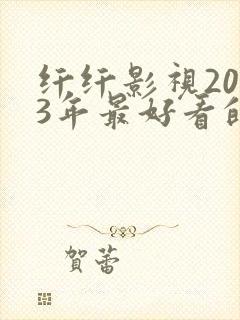 纤纤影視20
3年最好看的
賀蕾